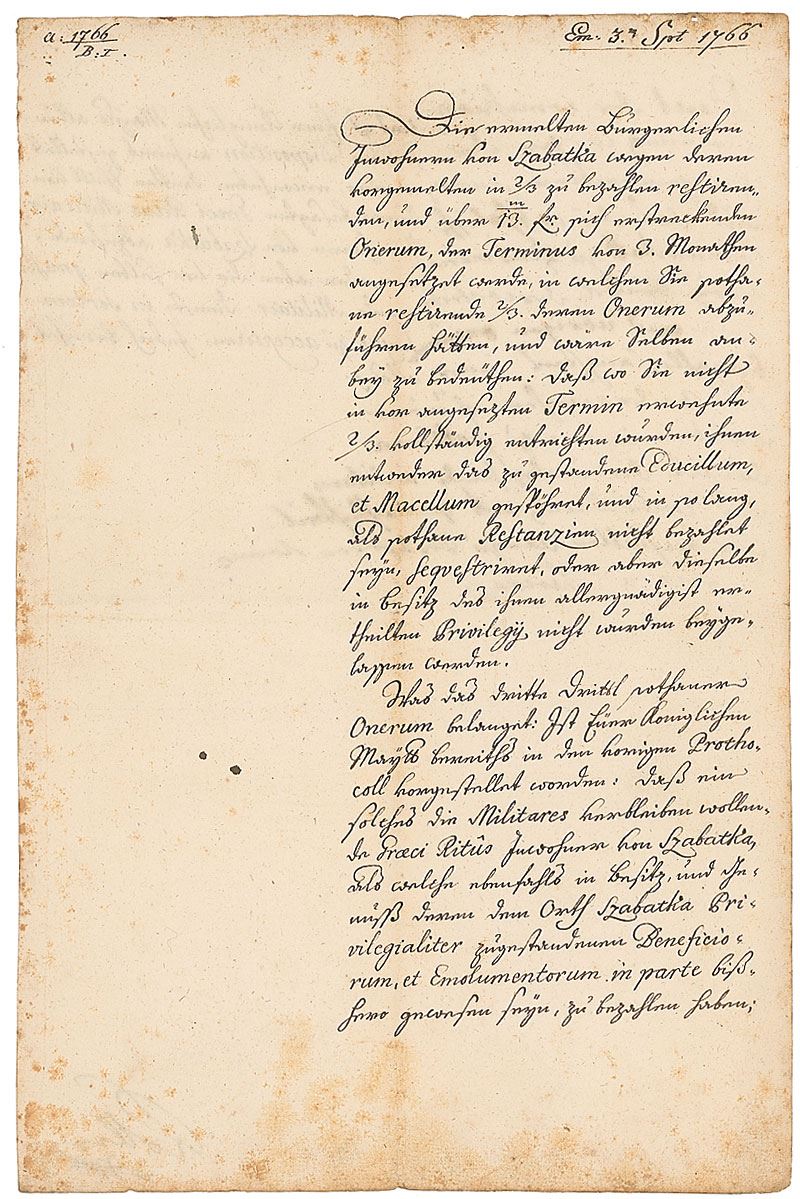 a: 1766
B: I.
Em. 3.n Spt 1766
Die ermelten Bürgerlichen
Inwohnern von Szabatka wegen deren
vorgemelten in 2/3 zu bezahlen restiren„
den, und über 13. m fr. sich erstreckenden
Onerum, der Terminus von 3. Monathen
angesetzet werde, in welchen Sie sotha-
ne restirende 2/3. deren Onerum abzu„
führen hätten, und wäre Selben an„
bey zu bedeüthen: daß wo Sie nicht
in vor angesezten Termin erwehnte
2/3. vollständig entrichten wurden, ihnen
entweder das zugestandene Educillum,
et Macellum gespöhret, und in so lang,
als sothane Restanzien nicht bezahlet
seyn, seqvestriret, oder aber dieselbe
in besitz des ihnen allergnädigist er„
theilten Privilegÿ nicht wurden beyge„
lassen werden.
Was das dritte Drittl sothaner
Onerum belanget: Ist Eüer Königlichen
Mayts bereiths in den vorigen Protho„
coll vorgestellet worden: daß ein
solches die Militares verbleiben wollen„
de Græci Ritûs Inwohner von Szabatka,
als welche ebenfahls in Besitz, und Ge„
nuß deren dem Orth Szabatka Pri„
vilegialiter zugestandenen Beneficio„
rum, et Emolumentorum in parte biß„
hero gewesen seyn, zu bezahlen haben;